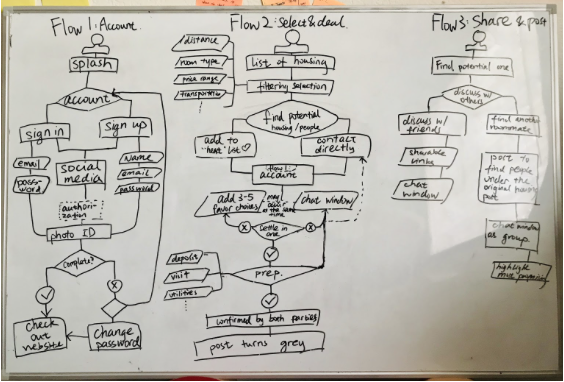 Flow 1: Account.
splash
account
sign in
sign up
email
pass-
word
social
media
Name
email
password
authori-
zation
photo ID
complete?
Check
out
website
Change
password
Flow 2: Select & deal
distance
room type
price range
transportation
List of housing
filtering selection
find potential
housing/people
add to
"heat" list
contact
directly
Flow 1
account
add 3-5
favor choices
chat window
Settle in
one
deposit
visit
utilities
prep.
confirmed by both parties
post turns grey
Flow 3: Share & post
Find potential one
discuss w/
others
discuss w/
friends
find another
roommate
sharable
links
chat window
post to
find people
under the
original housing
post
chat window
as group.
highlight